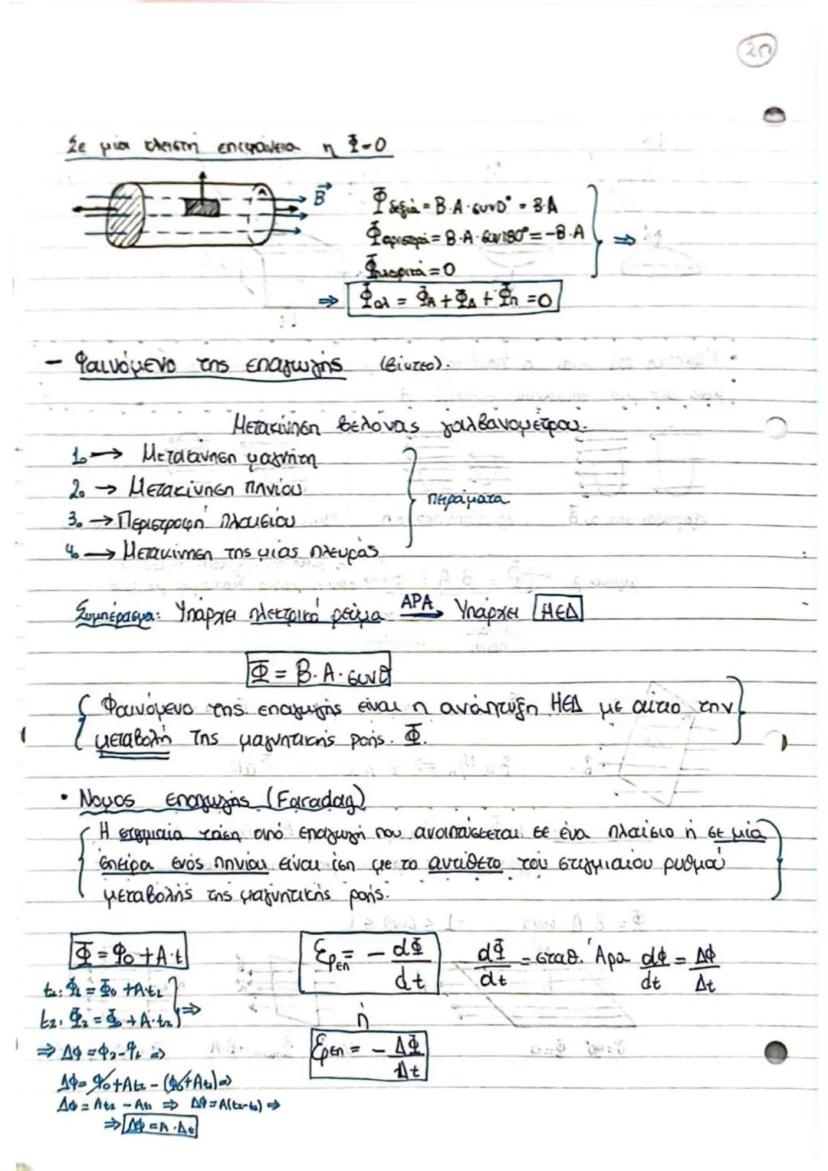 25
Σε μία κλειστή επιφάνεια η Φ=0
B⃗
Φδεξιά = B·A·συν0° = B·A
Φαριστερά = B·A·συν180° = -B·A
Φπλευρικά = 0
⇒
⇒ Φολ = ΦΑ + ΦΔ + ΦΠ = 0
- Φαινόμενο της επαγωγής (βίντεο).
Μετακίνηση βελόνας γαλβανομέτρου.
1. → Μετακίνηση μαγνήτη
2. → Μετακίνηση πηνίου
3. → Περιστροφή πλαισίου
4. → Μετακίνηση της μίας πλευράς
πειράματα
Συμπέρασμα: Υπάρχει ηλεκτρικό ρεύμα ΑΡΑ → Υπάρχει ΗΕΔ
Φ = B·A·συνθ
Φαινόμενο της επαγωγής είναι η ανάπτυξη ΗΕΔ με αίτιο την
μεταβολή της μαγνητικής ροής Φ.
• Νόμος επαγωγής (Faraday)
Η στιγμιαία τάση από επαγωγή που αναπτύσσεται σε ένα πλαίσιο ή σε μία
σπείρα ενός πηνίου είναι ίση με το αντίθετο του στιγμιαίου ρυθμού
μεταβολής της μαγνητικής ροής.
Φ = Φ0 + A·t
t1: Φ1 = Φ0 + A·t1
t2: Φ2 = Φ0 + A·t2 ⇒
⇒ ΔΦ = Φ2 - Φ1 ⇒
ΔΦ = Φ0 + At2 - (Φ0 + At1) ⇒
ΔΦ = At2 - At1 ⇒ ΔΦ = A(t2-t1) ⇒
⇒ ΔΦ = A·Δt
Ɛεπ = - dΦ/dt
ή
Ɛεπ = - ΔΦ/Δt
dΦ/dt = σταθ. Άρα dΦ/dt = ΔΦ/Δt